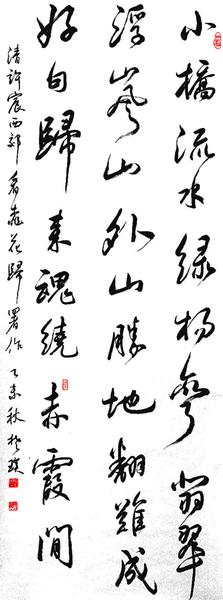 小橋流水绿杨弯翡翠
浮嵐山外山勝地翻難成
好句歸来魂繞赤霞間
清許宸西郭看桃花歸署作乙未秋